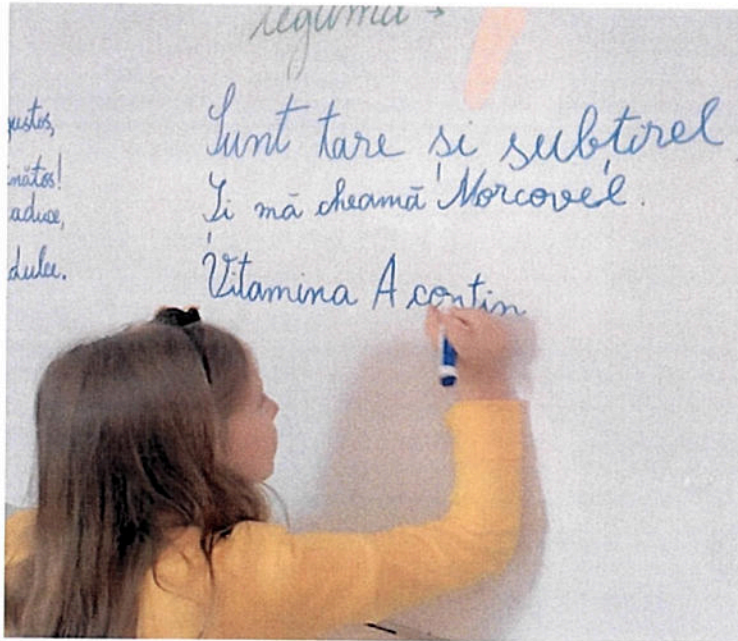 leguma →
gustos,
nătos!
aduce,
dulce.
Sunt tare și subțirel
Și mă cheamă Morcovel.
Vitamina A contin